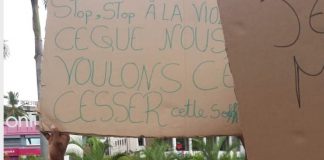 Stop, Stop À LA VIO
CE QUE NOUS
VOULONS C'E
CESSER cette Souff